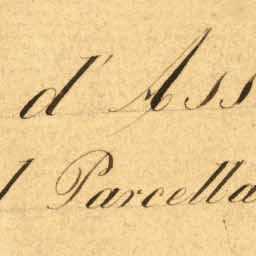 d' Ass
l Parcella